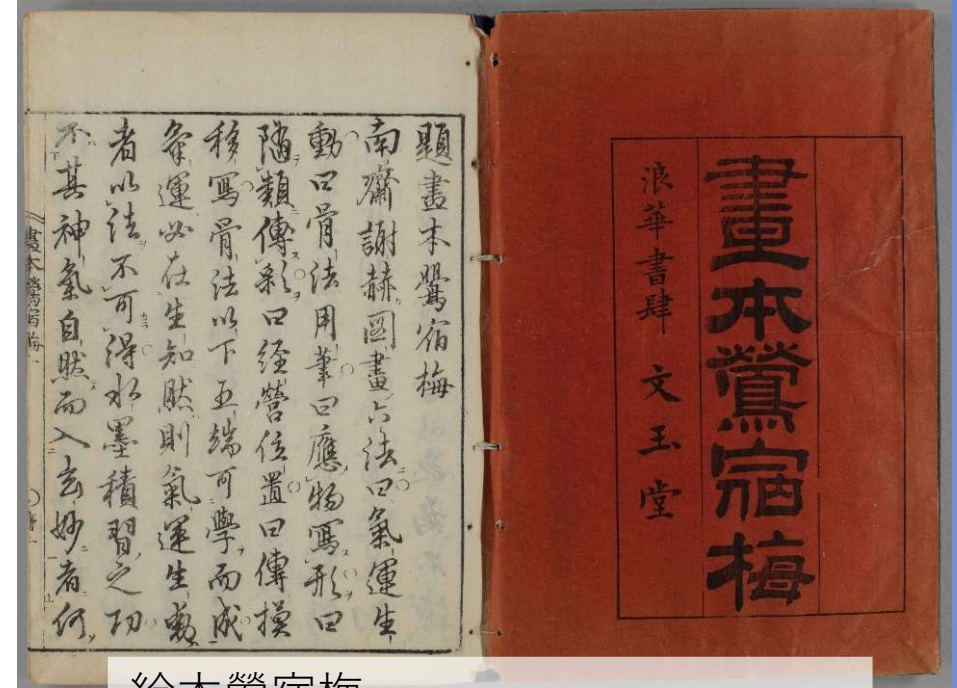 畫本鶯宿梅
浪華書肆 文玉堂
題畫本鸎宿梅
南齋謝赫圖畫六法曰氣運生
動曰骨法用筆曰應物寫形曰
隨類傳彩曰経營位置曰傳摸
移寫骨法以下五端可學而成
氣運必在生知然則氣運生動
者以法不可得水墨積習之功
不其神氣自然而入玄妙者何
畫本鶯宿梅一
絵本鶯宿梅